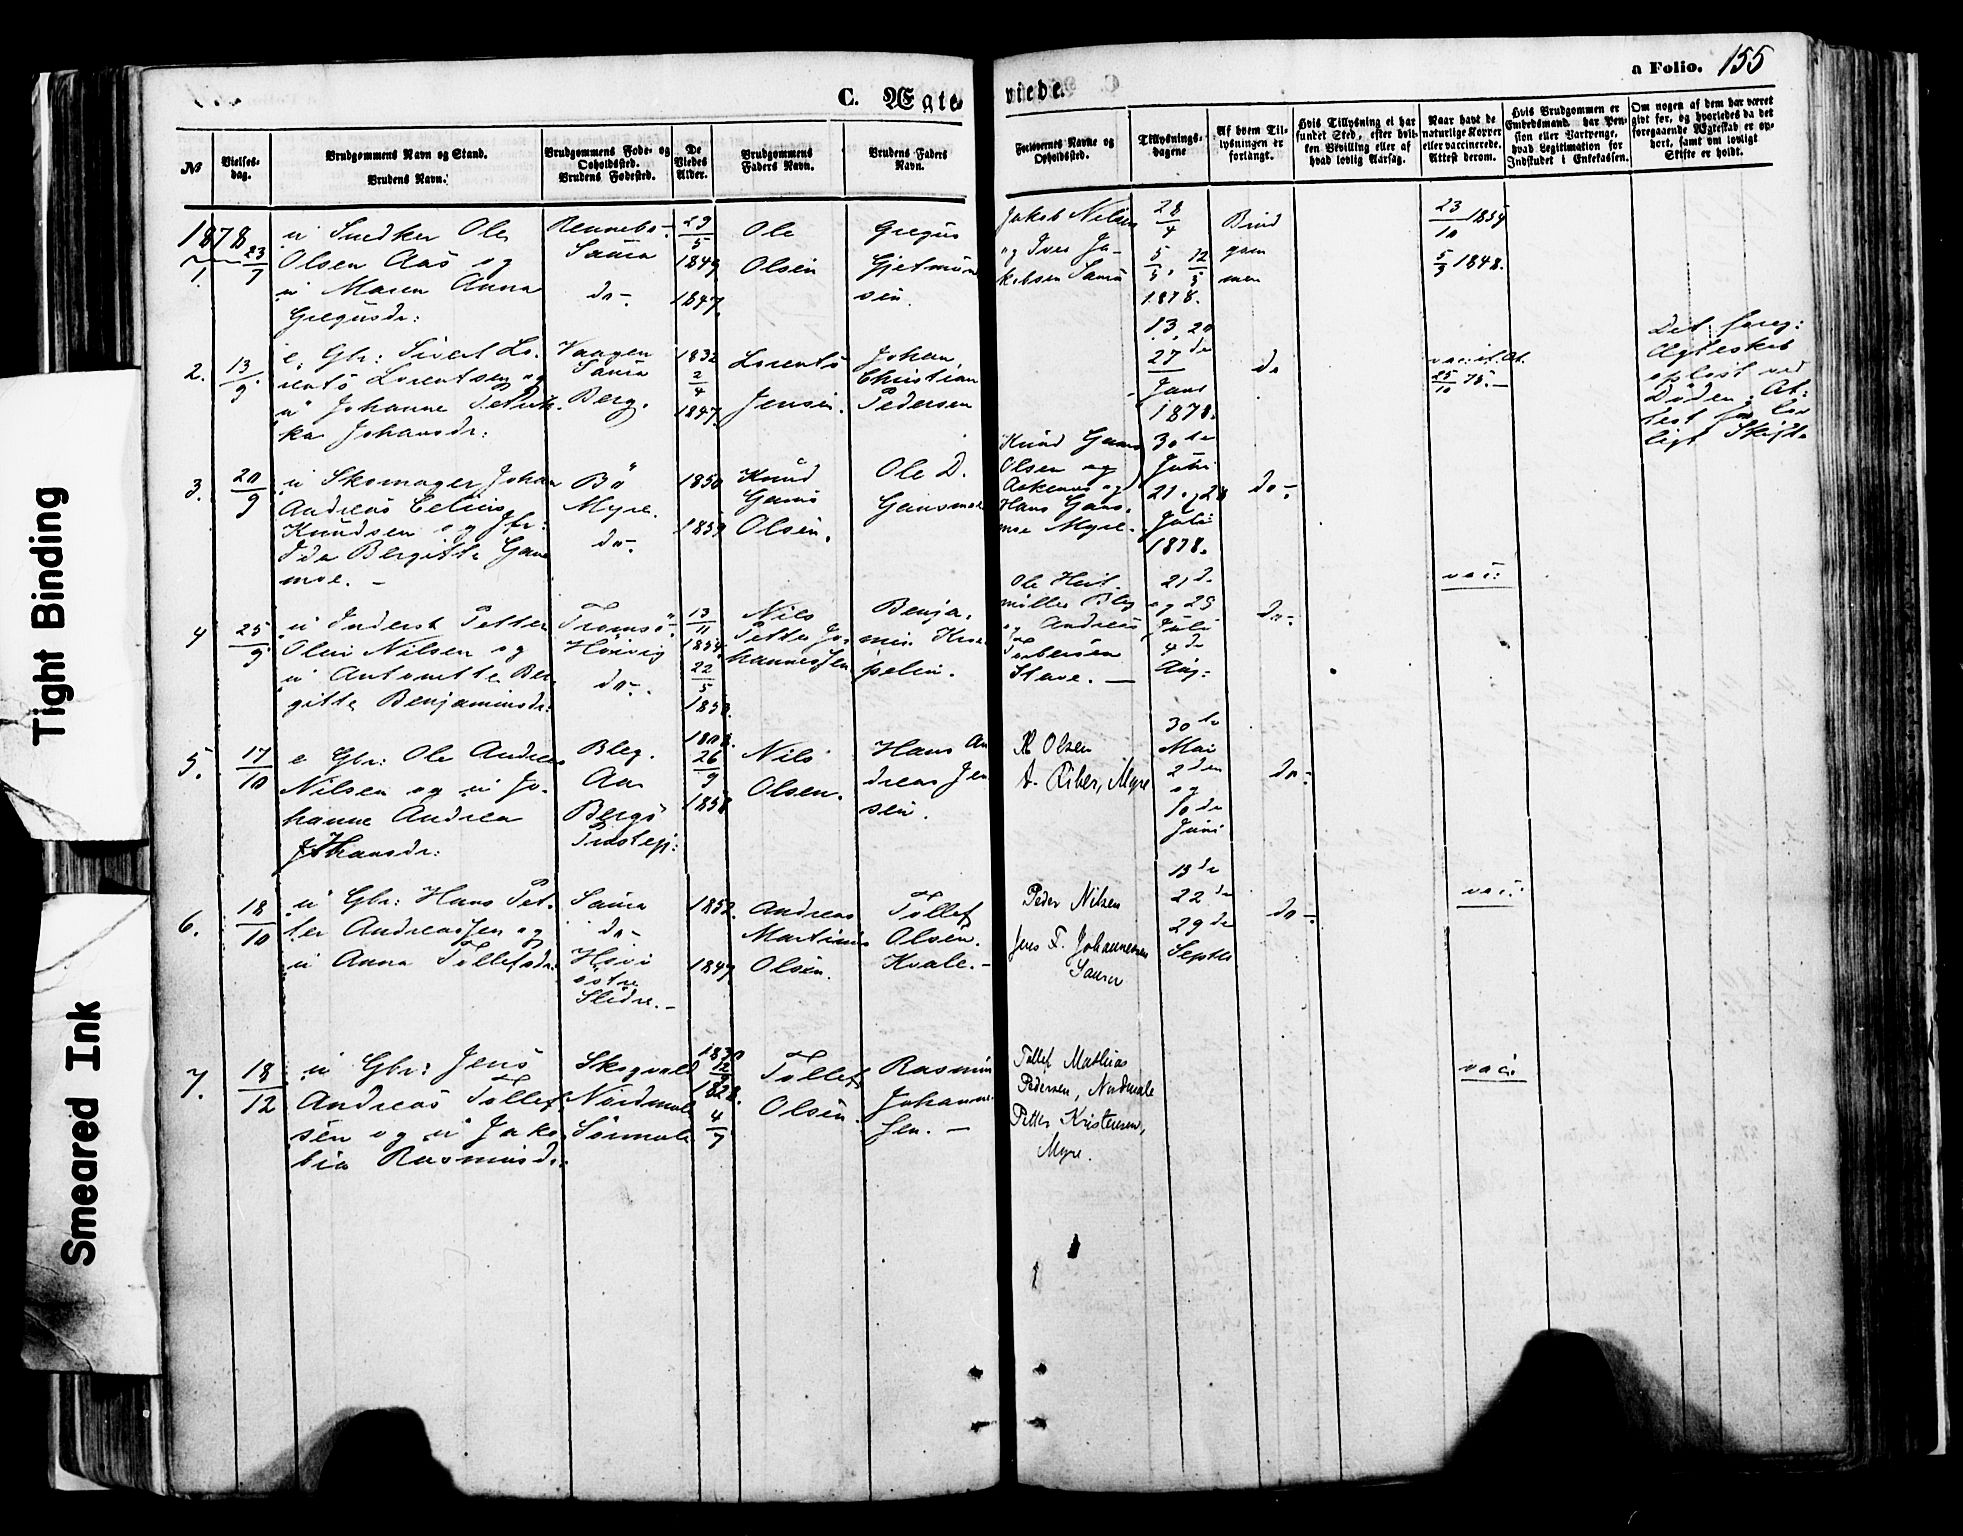 Tight Binding
Smeared Ink
C. Ægteviede.
a Folio. 155
No
Vielses-dag.
Brudgommens Navn og Stand.
Brudens Navn.
Brudgommens Føde- og Opholdssted.
Brudens Fødested.
De Viedes Alder.
Brudgommens Faders Navn.
Brudens Faders Navn.
Forlovernes Navne og Opholdssted.
Tillysnings-dagene
Af hvem Tillysningen er forlangt.
Hvis Tillysning ei har fundet Sted, efter hvilken Bevilling eller af hvad lovlig Aarsag.
Naar havt de naturlige Kopper eller vaccinerede. Attest derom.
Hvis Brudgommen er Embedsmand, har Pension eller Vartpenge, hvad Legitimation for Indskudet i Enkekassen.
Om nogen af dem har været gift før, og hvorledes da det foregaaende Ægteskab er ophørt, samt om lovligt Skifte er holdt.
1878
1. 23/7
u Snedker Ole
Olsen Aas og
u Maren Anna
Gregusdr:
Rennebo-
Saura
do-
29/5
1849
1847.
Ole
Olsen
Gregus
Jakob Nilsen
og Iver Ja-
kobsen Saura
28/4
5/5, 12/5
1878.
Brud
gom
men
23/10 1854
5/9 1848.
2. 13/9
e, Gbr: Sivert Lo-
rents Lorentsen og
u Johanne Petrik-
ka Johansdr:
Vaagen
Saura
Berg.
1832
2/4
1847.
Lorents
Jensen.
Johan
Christian
Pedersen
13, 20
27 de
Janr
1878.
do
25/10 75.-
Det foreg:
Ægteskab
opløst ved
Døden, At-
test for lov
ligt Skifte
3. 20/9
u Skomager Johan
Andreas Celius
Knudsen og Jfr:
Ida Bergitte Gans
moe. -
Bö
Myre.
do-
1850
1859
Knud
Gans
Olsen.
Ole D.
Gansmoe
Knud Gans
Olsen og
Hans Gans-
moe Myre.
30 te
Juni
21 og 28
Juli
1878.
do-
vac:
4 25/9
u Inderst Petter
Olai Nilsen og
u Antonette Ber
gitte Benjaminsdr:
Tromsö
do-
13/11
1854
22/5
1858.
Nils
Petter Jo-
hannessen
Benja-
min
pelin.
Ole Heit
møller Bleg
og Andreas
Torbersen
Stave. -
21 de
og 29
Juli
4 de
Aug:
do-
5. 17/10
e Gbr: Ole Andreas
Nilsen og u Jo-
hanne Andrea
Hansdr:
Bleg.
Aa
Bergs
Prestegj:
1808.
26/9
1858
Nils
Olsen.
Hans An
dreas Jen
sen.
Olsen
A. Riber, Myre
30 te
Mai
2 den
og
10 de
Juni
do-
6. 18/10
u Gbr: Hans Pet-
ter Andreassen og
u Anna Tollefsdr:
Saura
do-
östre
Slidre. -
1852.
1849
Andreas
Martinus
Olsen.
Tollef
Olsen.
Kvale. -
Peder Nilsen
Jens F. Johannesen
Saura
13 de
22 de
29 de
Septbr
do-
vac:
7. 18/12
u Gbr: Jens
Andreas Tollef
sen og u Jako
bia Rasmusdr:
Skogvold
Nordmele
Sørmele
1828.
4/7
Tollef
Olsen.
Rasmus
Johanne
sen. -
Tollef Mathias
Pedersen, Nordmele
Petter Kristensen,
Myre.
vac: